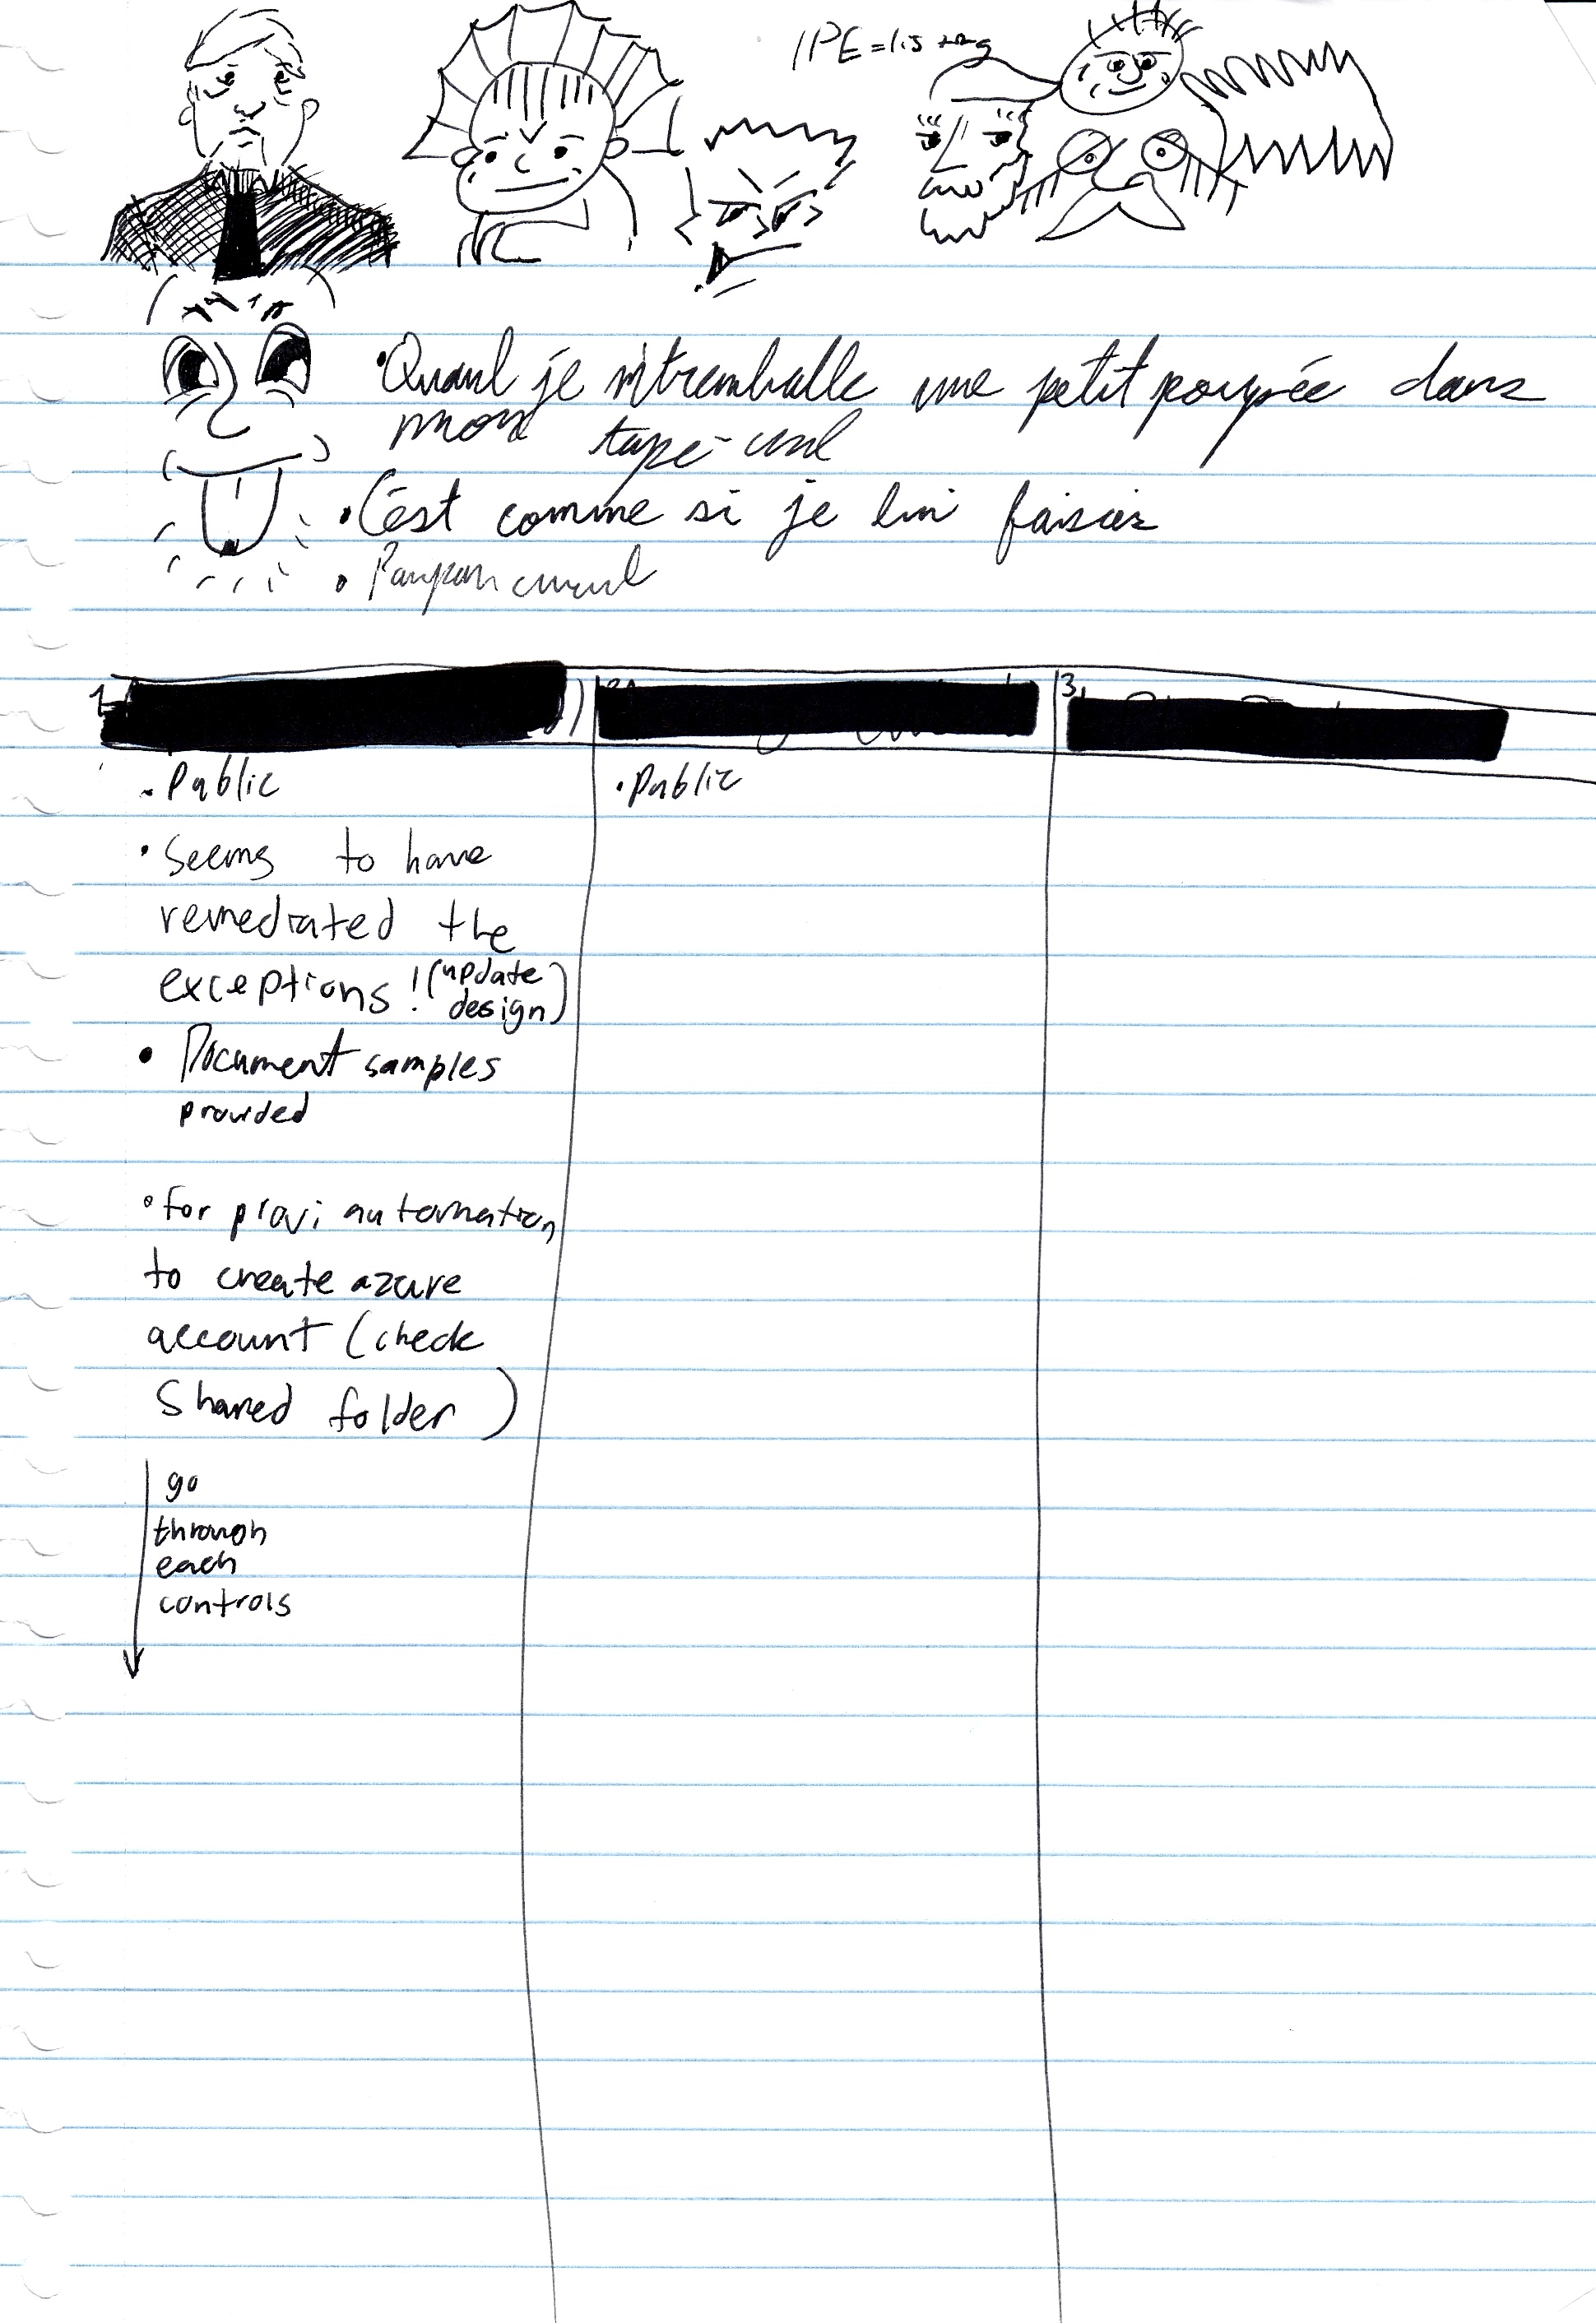 IPE = 1.5
• Quand je m'tremballe une petit poupée dans
mon tape-cul
• C'est comme si je lui faisais
•
1
3,
• Public
• Seems to have
remediated the
exceptions! (update
design)
• Document samples
provided
• For provi automation
to create azure
account (check
Shared folder)
go
through
each
controls
• Public